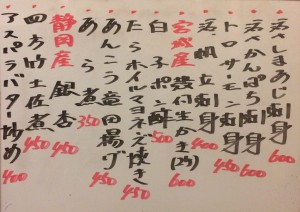 活〆しまあじ刺身 600
活〆かんぱち刺身 600
トロサーモン刺身
活帆立刺身 400
宮城産 殻付生かき(2ケ) 600
白子ポン酢 500
たらホイルマヨネーズ焼き 450
あんこう竜田揚げ 450
あら煮 350
静岡産 銀杏 450
四方竹土佐煮 450
アスパラバター炒め 400